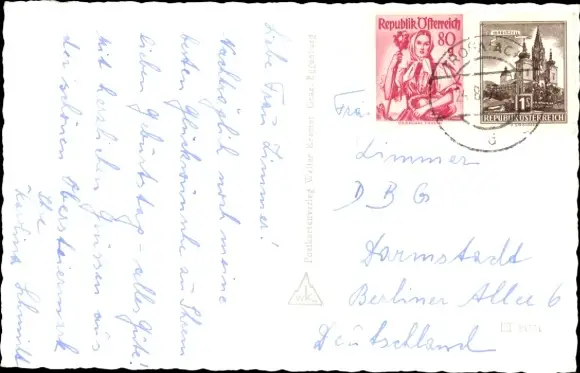 Liebe Frau Zimmer!
Nachträglich noch meine
besten Glückwünsche zu Ihrem
lieben Geburtstag - alles Gute!
Mit herzlichen Grüssen aus
der schönen Obersteiermark
Ihre
Schmidt
Postkartenverlag Walter Kramer Graz
WK
Republik Österreich
80
REPUBLIK ÖSTERREICH
1S
Zimmer
DBG
Darmstadt
Berliner Allee 6
Deutschland